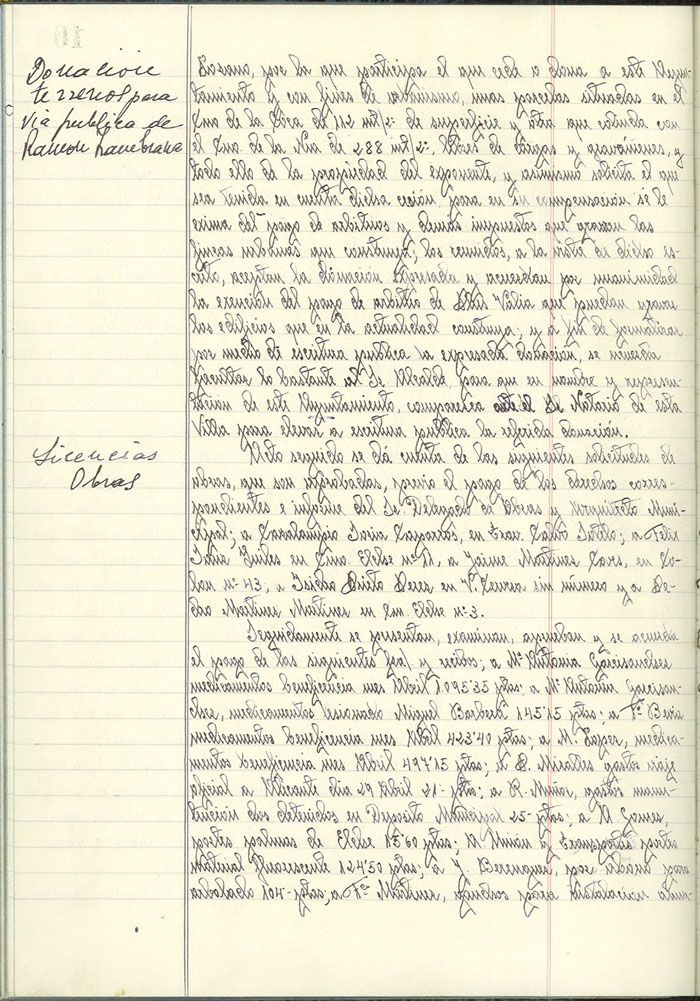 Donación
terrenos para
vía publica de
Ramon
Lozano, por la que participa el que cede o dona a este Ayun-
tamiento y con fines de urbanismo, unas parcelas situadas en el
Cno de la Loca de 112 mt/2- de superficie y otra que colinda con
el Cno. de la Nia de 288 mt/2-. libres de cargas y gravámenes, y
todo ello de la propiedad del exponente, y asimismo solicita el que
sea tenida en cuenta dicha cesión para en su compensación se le
exima del pago de arbitrios y demás impuestos que gravan las
fincas urbanas que construya; los reunidos, a la vista de dicho es-
crito, aceptan la donación interesada y acuerdan por unanimidad
la exención del pago de arbitrio de Plus Valia que puedan gravar
los edificios que en la actualidad construya; y a fin de formalizar
por medio de escritura publica la expresada donación, se acuerda
facultar lo bastante al Sr Alcalde para que en nombre y represen-
tación de este Ayuntamiento, comparezca ante el Sr Notario de esta
Villa para elevar a escritura publica la referida donación.
Licencias
Obras
Acto seguido se dá cuenta de las siguientes solicitudes de
obras, que son aprobadas, previo el pago de los derechos corres-
pondientes e informe del Sr Delegado de Obras y Arquitecto Muni-
cipal; a Caralampio Soria en Gral. Calvo Sotelo; a Felix
en Cmo. Elche nº 11, a Jaime Martinez en Co-
lon nº 43, a Isidro Prieto Peres en V. sin número y a Pe-
dro Martinez Martinez en Cm. Elche nº 3.
Seguidamente se presentan, examinan, aprueban y se acuerda
el pago de las siguientes fras/ y recibos; a Mª Antonia
medicamentos beneficencia mes Abril 1.095'35 ptas; a Mª Antonia
medicamentos lesionado Miguel Barberá 145'15 ptas; a Fº
medicamentos beneficencia mes Abril 423'40 ptas; a M. medica-
mentos beneficencia mes Abril 497'15 ptas; a B. Miralles gastos viaje
oficial a Alicante dia 29 Abril 21- ptas; a R. Muñoz, gastos manu-
tención dos detenidos en Deposito Municipal 25- ptas; a N. Gomez,
portes palmas de Elche 15'60 ptas; a Unión y Transportes portes
material fluorescente 124'50 ptas; a J. Berenguer, por abono para
arbolado 104- ptas, a Fº Martinez, para instalacion alum-